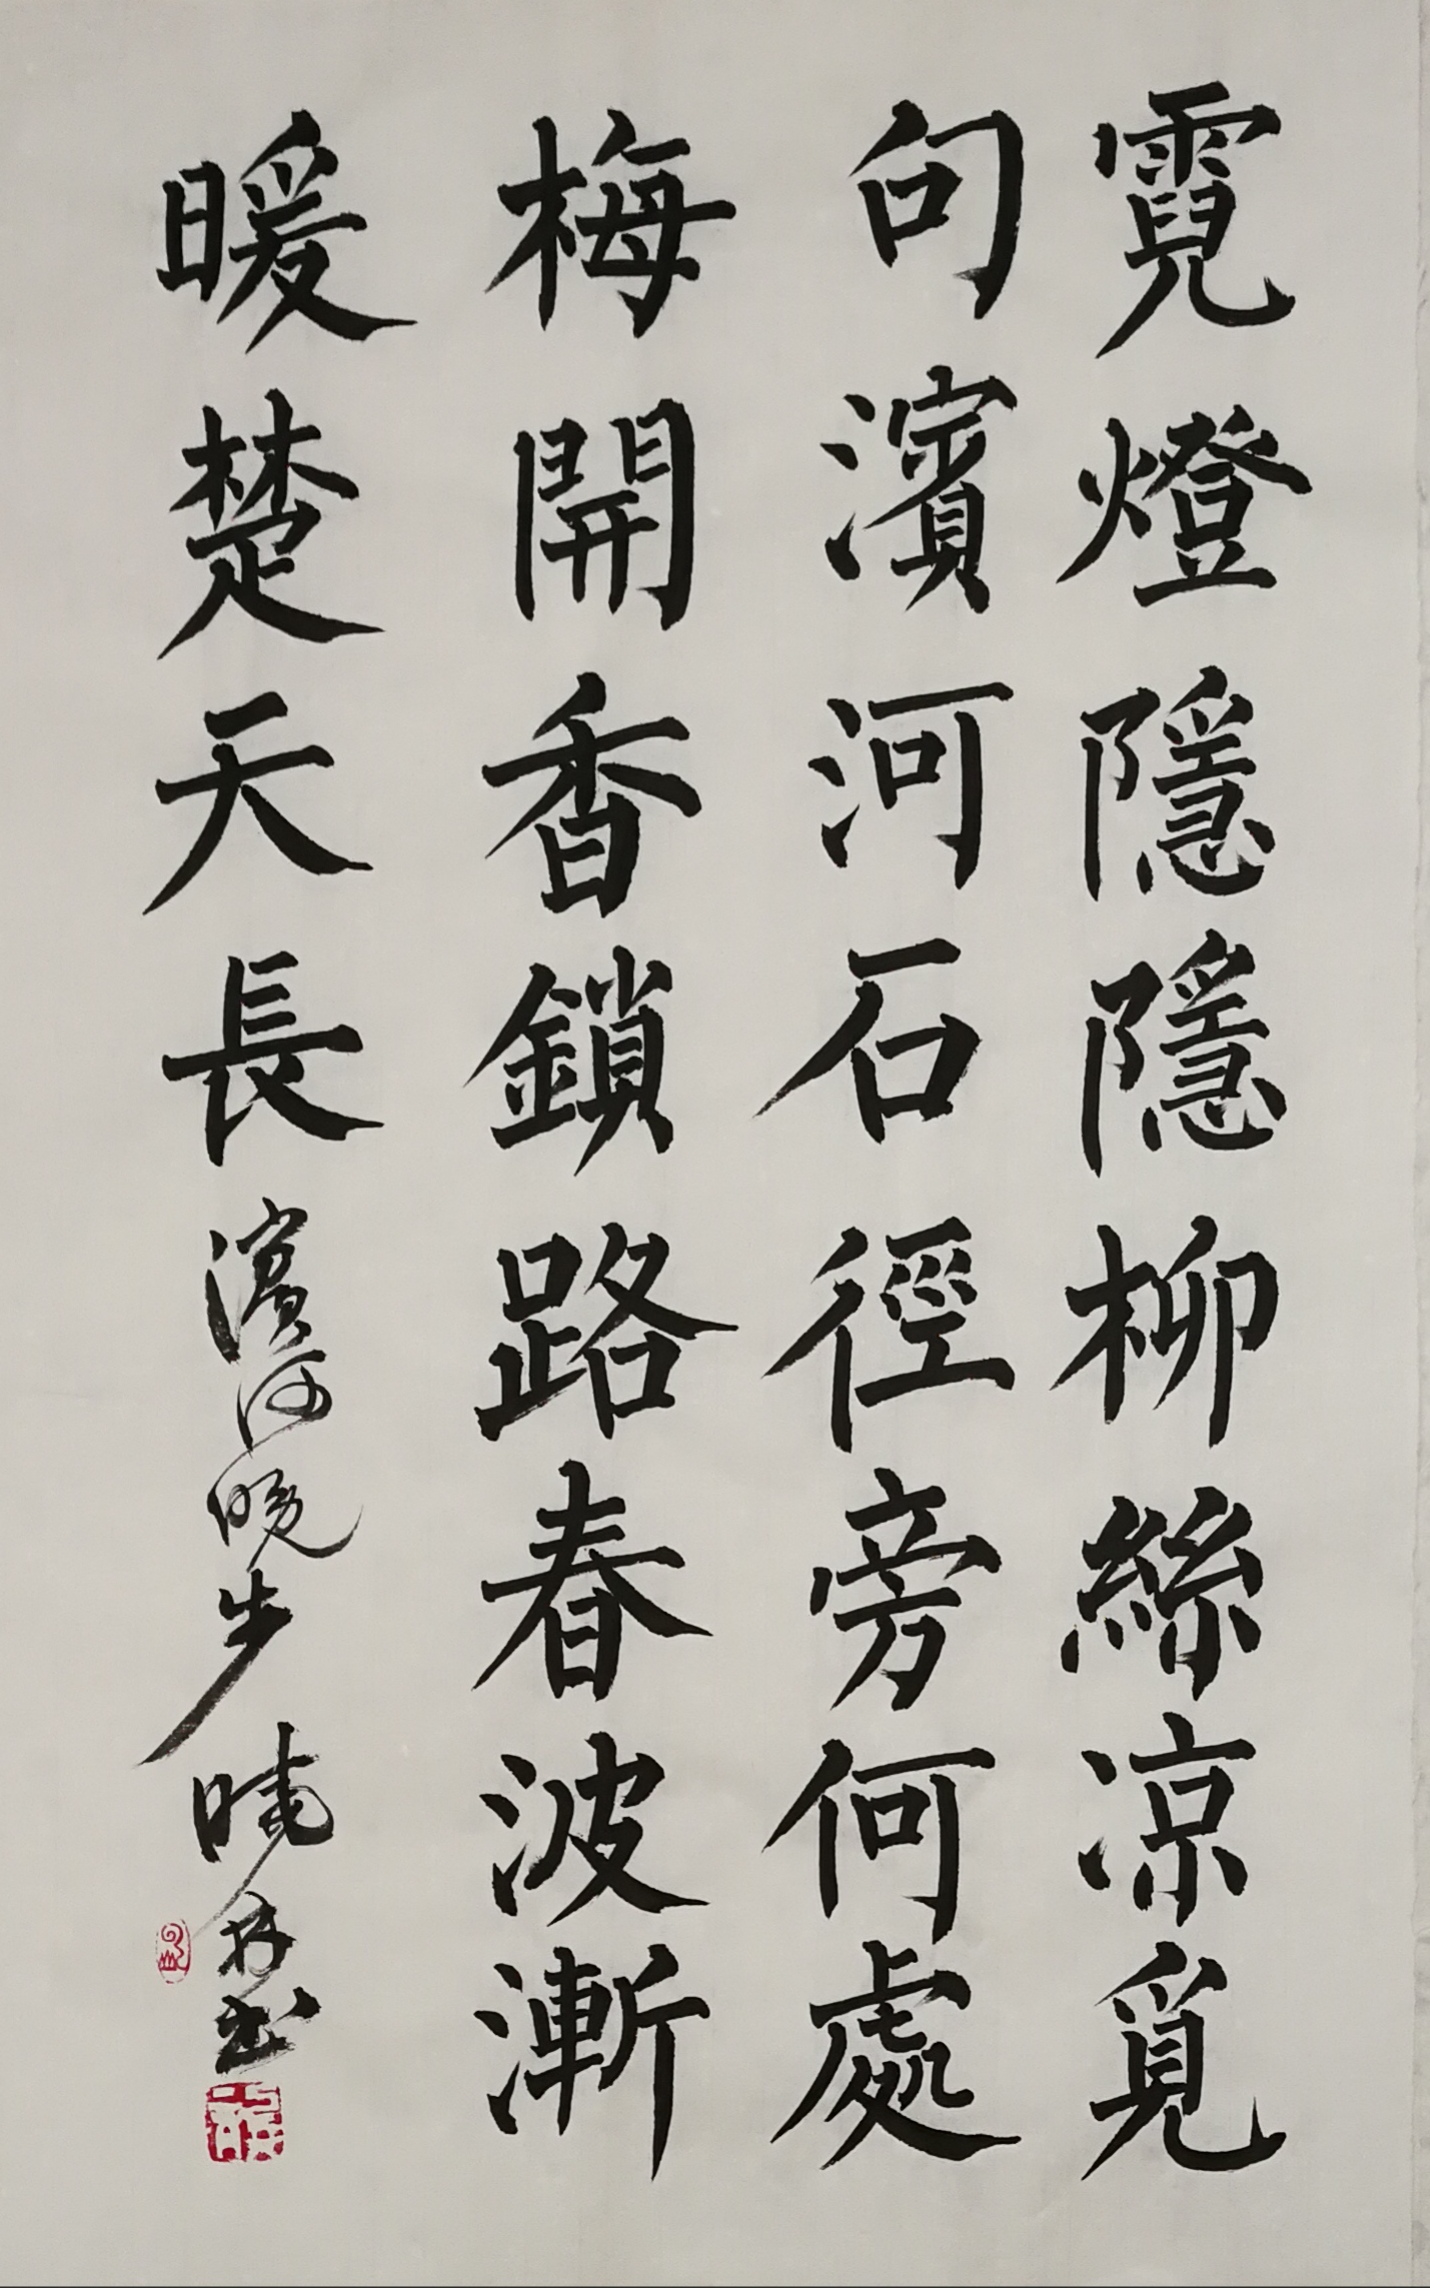 霓燈隱隱柳絲凉覓
句濱河石徑旁何處
梅開香鎖路春波漸
暖楚天長
濱河晚步 曉林書